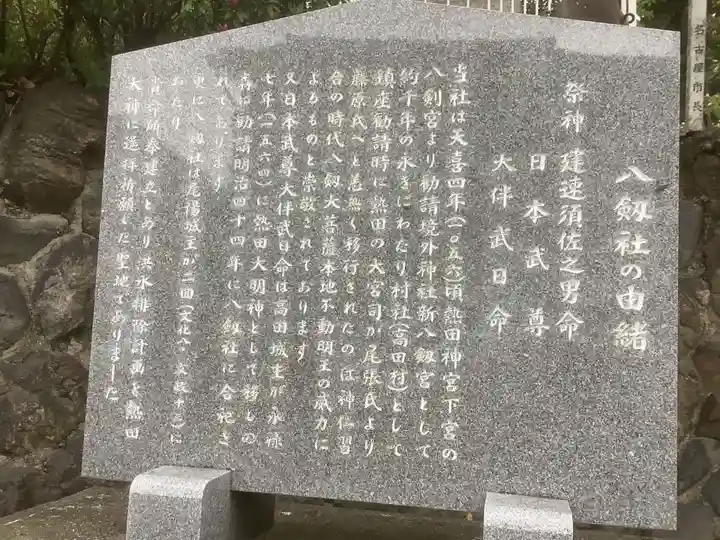 八剱社の由緒
祭神 建速須佐之男命
日本武尊
大伴武日命
当社は天喜四年(一〇五六)頃熱田神宮下宮の
八剣宮より勧請境外神社新八剱宮として
約千年の永きにわたり村社(高田村)として
鎮座勧請時に熱田の大宮司が尾張氏より
藤原氏へと急熱く移行されたのは神仏習
合の時代八剱大菩薩本地不動明王の威力に
よるものと崇敬されてあります
又日本武尊大伴武日命は高田城主が永禄
七年(一五六四)に熱田大明神として移しの
勧請明治四十四年に八剱社に合祀さ
れております
更に八剱社は尾陽城主が二回(文化八、文政十三)に
わたり
御奉建立とあり洪水排除計画を熱田
大神に遙拝祈願した聖地でありました
名古屋市長